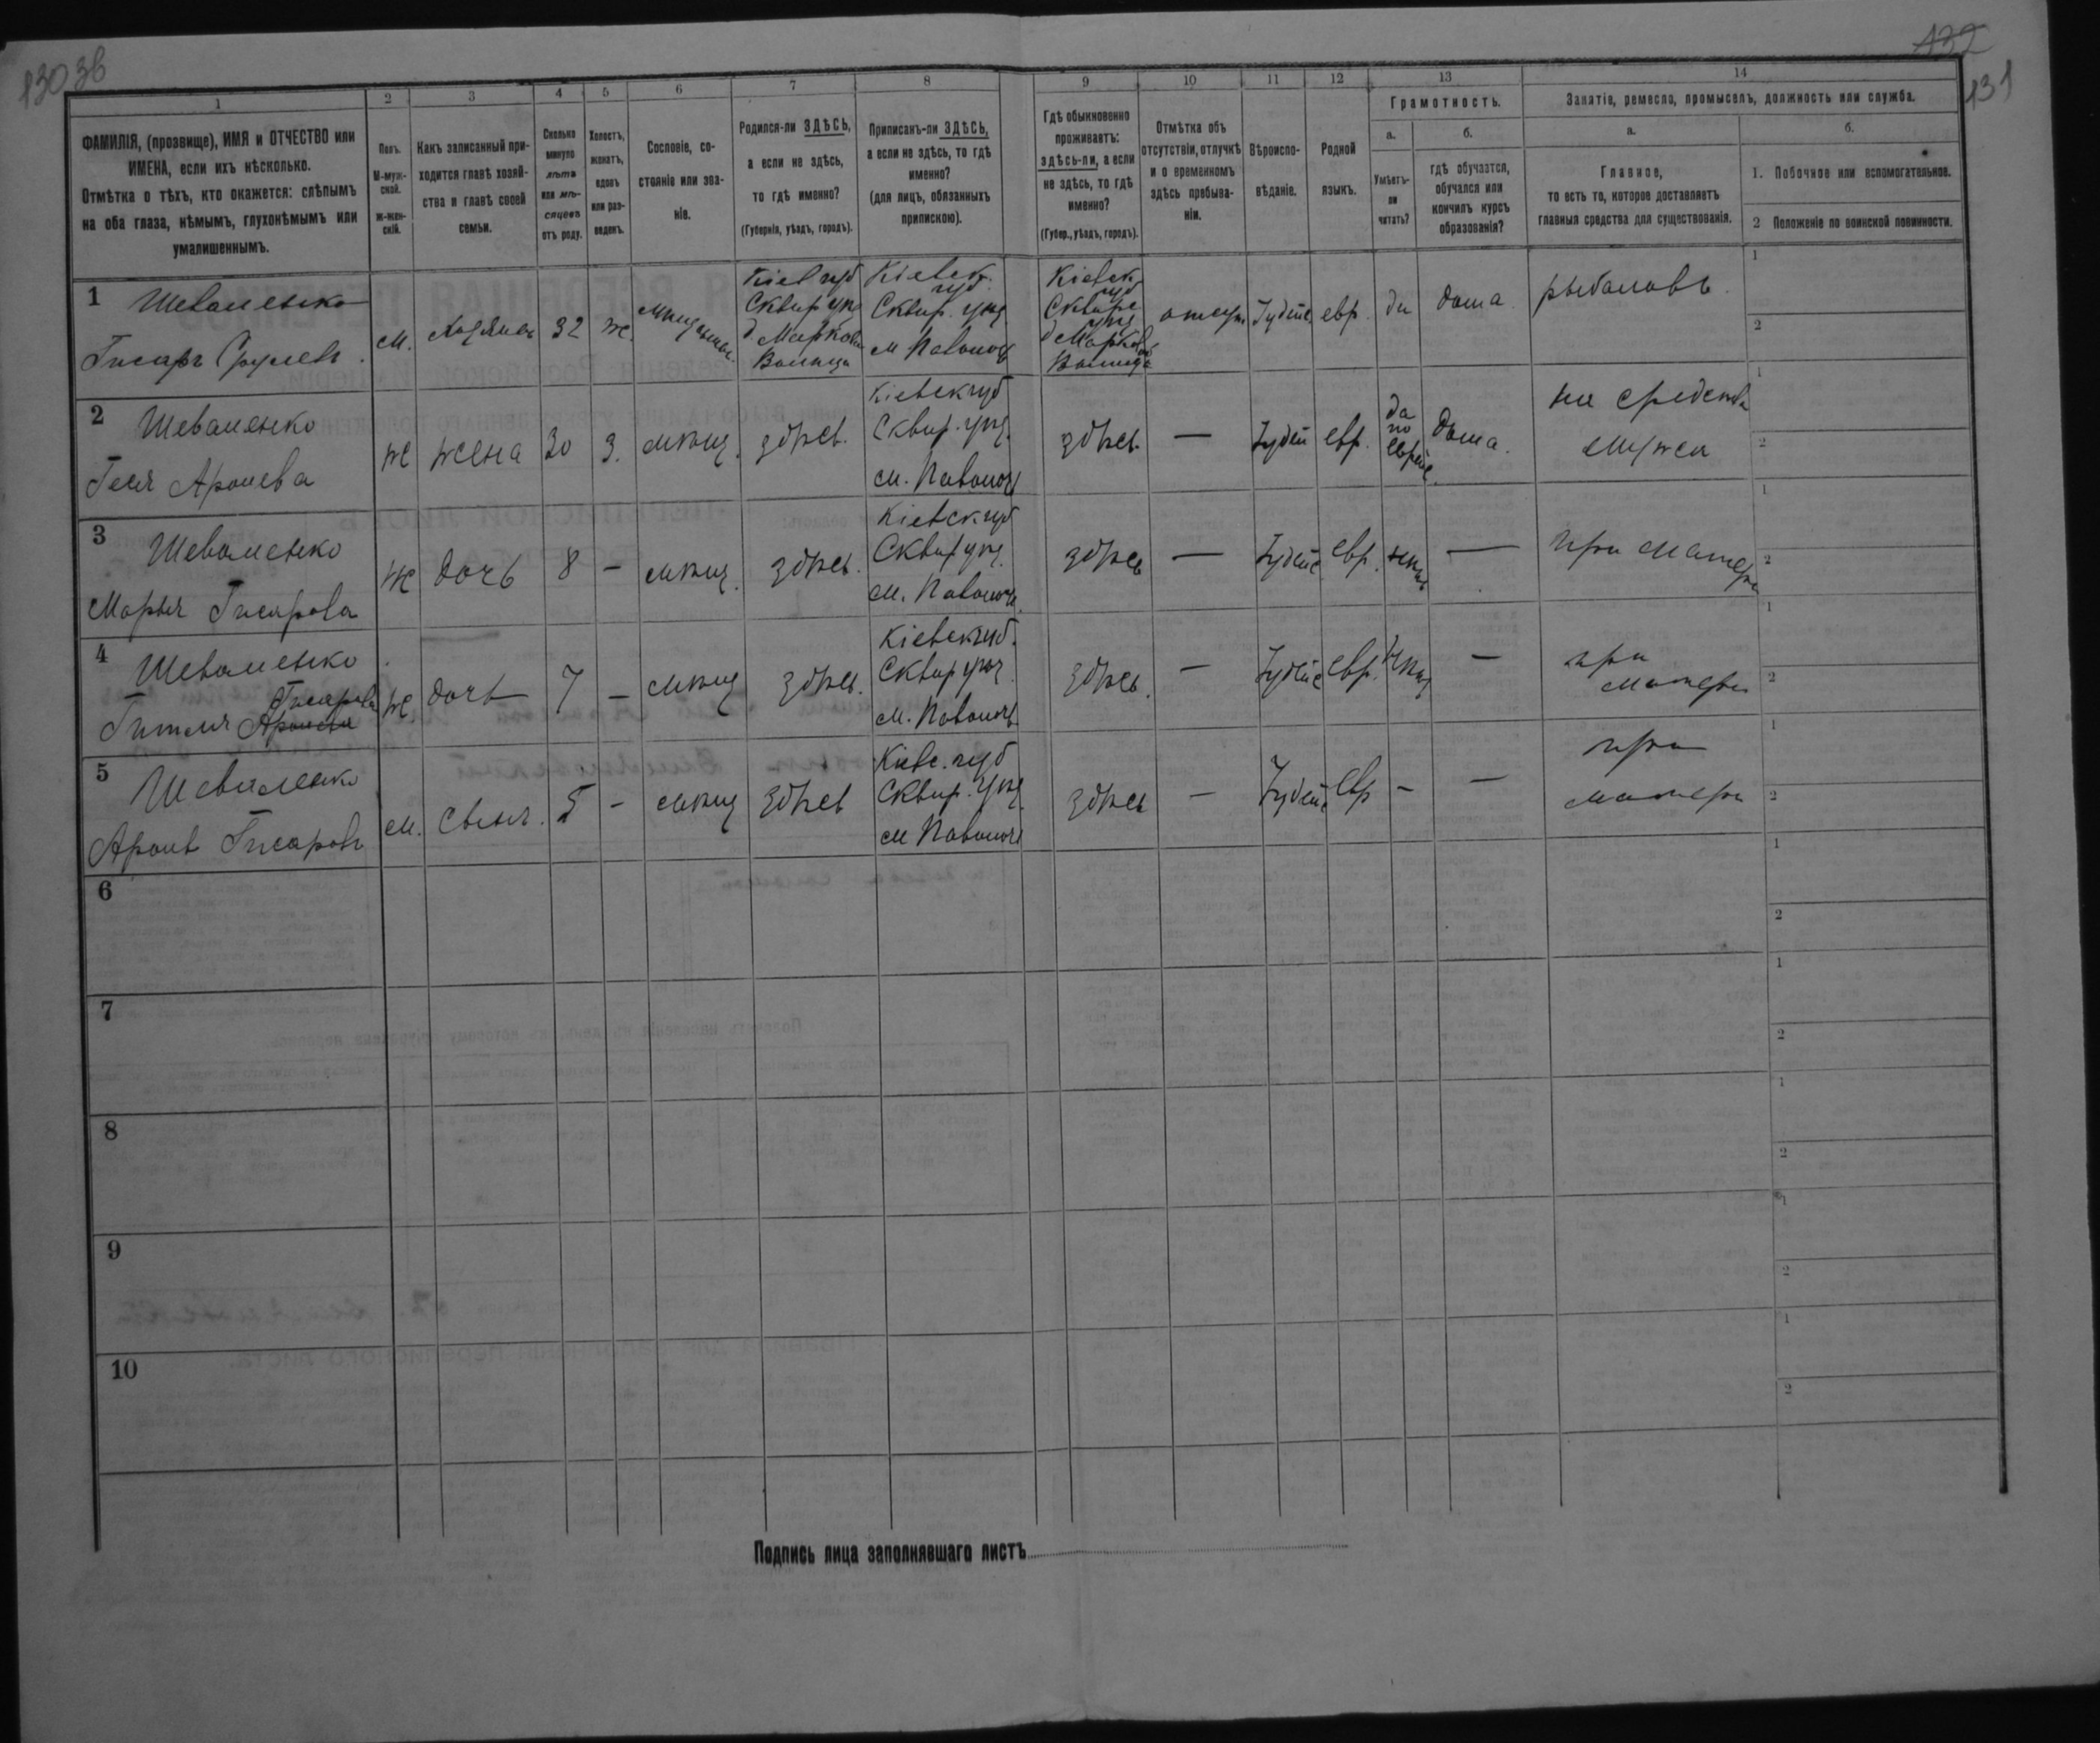 130 зв
132
131
1
2
3
4
5
6
7
8
9
10
11
12
13
14
ФАМИЛІЯ, (прозвище), ИМЯ и ОТЧЕСТВО или
ИМЕНА, если ихъ нѣсколько.
Отмѣтка о тѣхъ, кто окажется: слѣпымъ
на оба глаза, нѣмымъ, глухонѣмымъ или
умалишеннымъ.
Полъ.
М-муж-
ской.
ж-жен-
скій.
Какъ записанный при-
ходится главѣ хозяй-
ства и главѣ своей
семьи.
Сколько
минуло
лѣтъ
или мѣ-
сяцевъ
отъ роду.
Холостъ,
женатъ,
вдовъ
или раз-
веденъ.
Сословіе, со-
стояніе или зва-
ніе.
Родился-ли ЗДѢСЬ,
а если не здѣсь,
то гдѣ именно?
(Губернія, уѣздъ, городъ).
Приписанъ-ли ЗДѢСЬ,
а если не здѣсь, то гдѣ
именно?
(для лицъ, обязанныхъ
припискою).
Гдѣ обыкновенно
проживаетъ:
здѣсь-ли, а если
не здѣсь, то гдѣ
именно?
(Губер., уѣздъ, городъ).
Отмѣтка объ
отсутствіи, отлучкѣ
и о временномъ
здѣсь пребыва-
ніи.
Вѣроиспо-
вѣданіе.
Родной
языкъ.
Грамотность.
а.
Умѣетъ-
ли
читать?
б.
гдѣ обучается,
обучался или
кончилъ курсъ
образованія?
Занятіе, ремесло, промыселъ, должность или служба.
а.
Главное,
то есть то, которое доставляетъ
главныя средства для существованія.
б.
1. Побочное или вспомогательное.
2 Положеніе по воинской повинности.
1 Шеваленко
Гисаръ Срулевъ.
м.
хозяинъ
32
ж.
Кіев губ
Сквир уѣз
д. Марков
Волица
Кіевск.
губ.
Сквир. уѣз
м Паволоч
Кіевск
губ
Сквирс
уѣз
д Марков
Волица
отсут
Іудейс
евр.
да
дома.
рыболовъ.
1
2
2 Шеваленко
Геся Аронева
ж
жена
30
з.
мѣщ.
здѣсь.
Кіевск губ
Сквир. уѣз.
м. Паволоч
здѣсь
—
Іудей
евр.
да
по
еврейс.
дома.
на средства
мужа
1
2
3 Шеваленко
Марья Гисарова
ж
дочь
8
-
мѣщ.
здѣсь.
Кіевск губ
Сквир уѣз.
м. Паволоч.
здѣсь
—
Іудейс
евр.
нѣтъ
—
при матери
1
2
4 Шеваленко
Гисарова
Гитля Аронева
ж.
дочь
7
-
мѣщ
здѣсь.
Кіевск губ.
Сквир уѣз.
м. Паволочь
здѣсь.
—
Іудейс
евр.
нѣтъ
—
при
матери
1
2
5 Шеваленко
Аронъ Гисаровъ
м.
сынъ.
5
-
мѣщ
здѣсь
Кіевс. губ
Сквир. уѣз
м Паволоч
здѣсь
—
Іудейс
евр
-
—
при
матери
1
2
6
1
2
7
1
2
8
1
2
9
1
2
10
1
2
Подпись лица заполнявшаго листъ